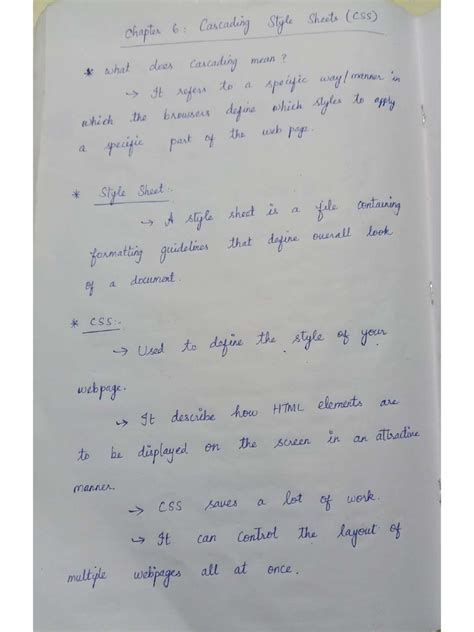 Chapter 6: Cascading Style Sheets (CSS)
* What does Cascading mean?
→ It refers to a specific way/manner in
which the browsers define which styles to apply
a specific part of the web page.
* Style Sheet:-
→ A style sheet is a file containing
formatting guidelines that define overall look
of a document.
* CSS:-
→ Used to define the style of your
webpage.
→ It describe how HTML elements are
to be displayed on the screen in an attractive
manner.
→ CSS saves a lot of work.
→ It can control the layout of
multiple webpages all at once.